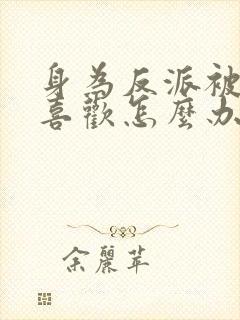 身為反派被
喜歡怎麼办
余麗苹